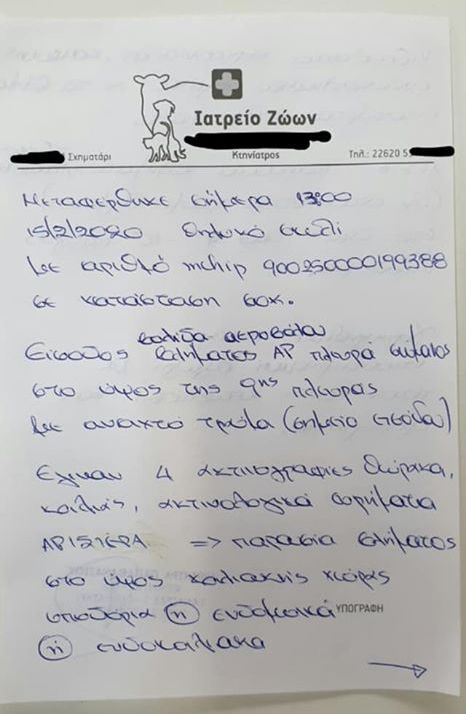 Ιατρείο Ζώων
Σχηματάρι Κτηνίατρος Τηλ.: 22620 5
Μεταφέρθηκε σήμερα 13:00
15/2/2020 θηλυκό σκυλί
με αριθμό mchip 900250000199388
σε κατάσταση σοκ.
βολίδα αεροβόλου
Είσοδος βλήματος ΑΡ πλευρά σώματος
στο ύψος της 9ης πλευράς
με ανοιχτό τραύμα (σημείο εισόδου)
Έγιναν 4 ακτινογραφίες θώρακα,
κοιλιάς, ακτινολογικά ευρήματα
ΑΡΙΣΤΕΡΑ => παρουσία βλήματος
στο ύψος κοιλιακής χώρας
υποδόρια ή ενδομυικά
ΥΠΟΓΡΑΦΗ
ή ενδοκοιλιακα